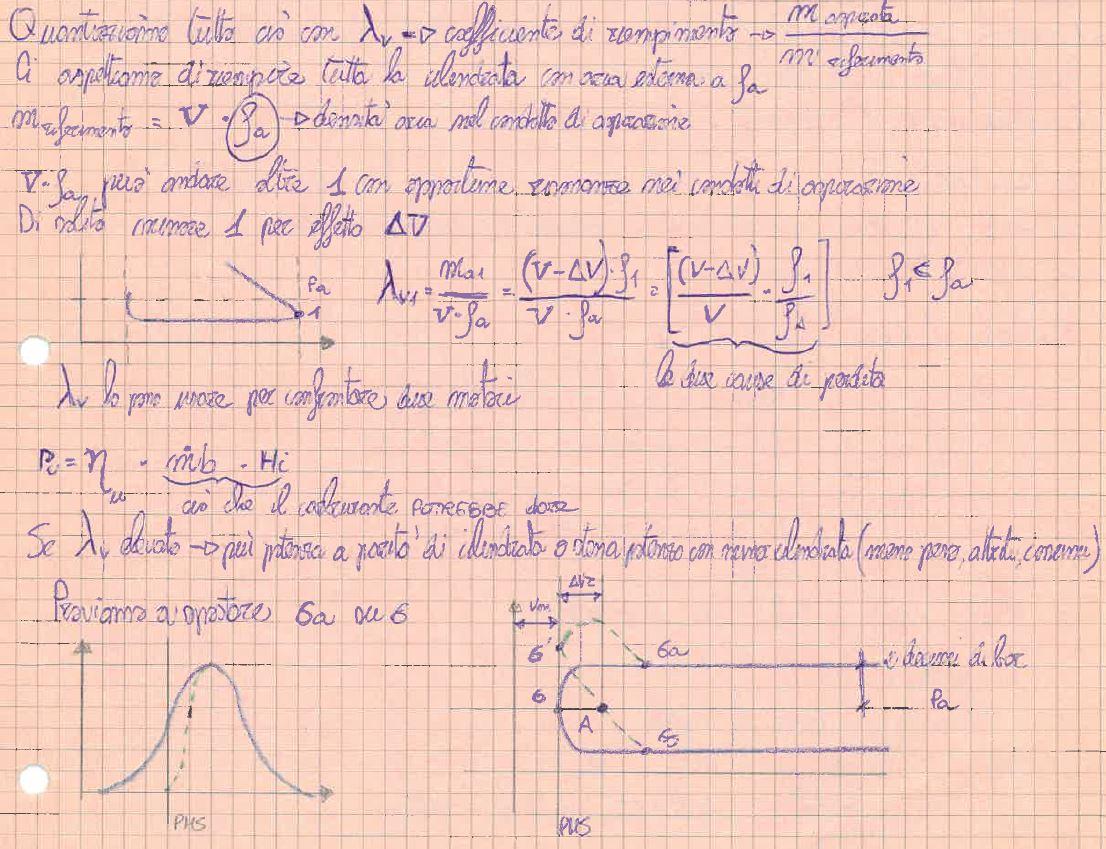 Quantizziamo tutto ciò con λv → coefficiente di riempimento → m aspirata / m riferimento
Ci aspettiamo di riempire tutta la cilindrata con aria esterna a ρa
m riferimento = V · ρa → densità aria nel condotto di aspirazione
V·ρa può andare oltre 1 con opportune risonanze nei condotti di aspirazione
Di solito minore 1 per effetto ΔV
Pa
1
λv1 = ma1 / V·ρa = (V-ΔV)·ρ1 / V·ρa = [(V-ΔV) / V · ρ1 / ρa] ρ1 ≤ ρa
le due cause di perdita
λv lo posso usare per confrontare due motori
Pi = ηu · ṁb · Hi
ciò che il carburante POTREBBE dare
Se λv elevato → più potenza a parità di cilindrata o stessa potenza con meno cilindrata (meno peso, attriti, consumi)
Proviamo a spostare 6a su 6
PMS
Δvr
Vm
6'
6a
6
A
6s
decimi di bar
Pa
PMS